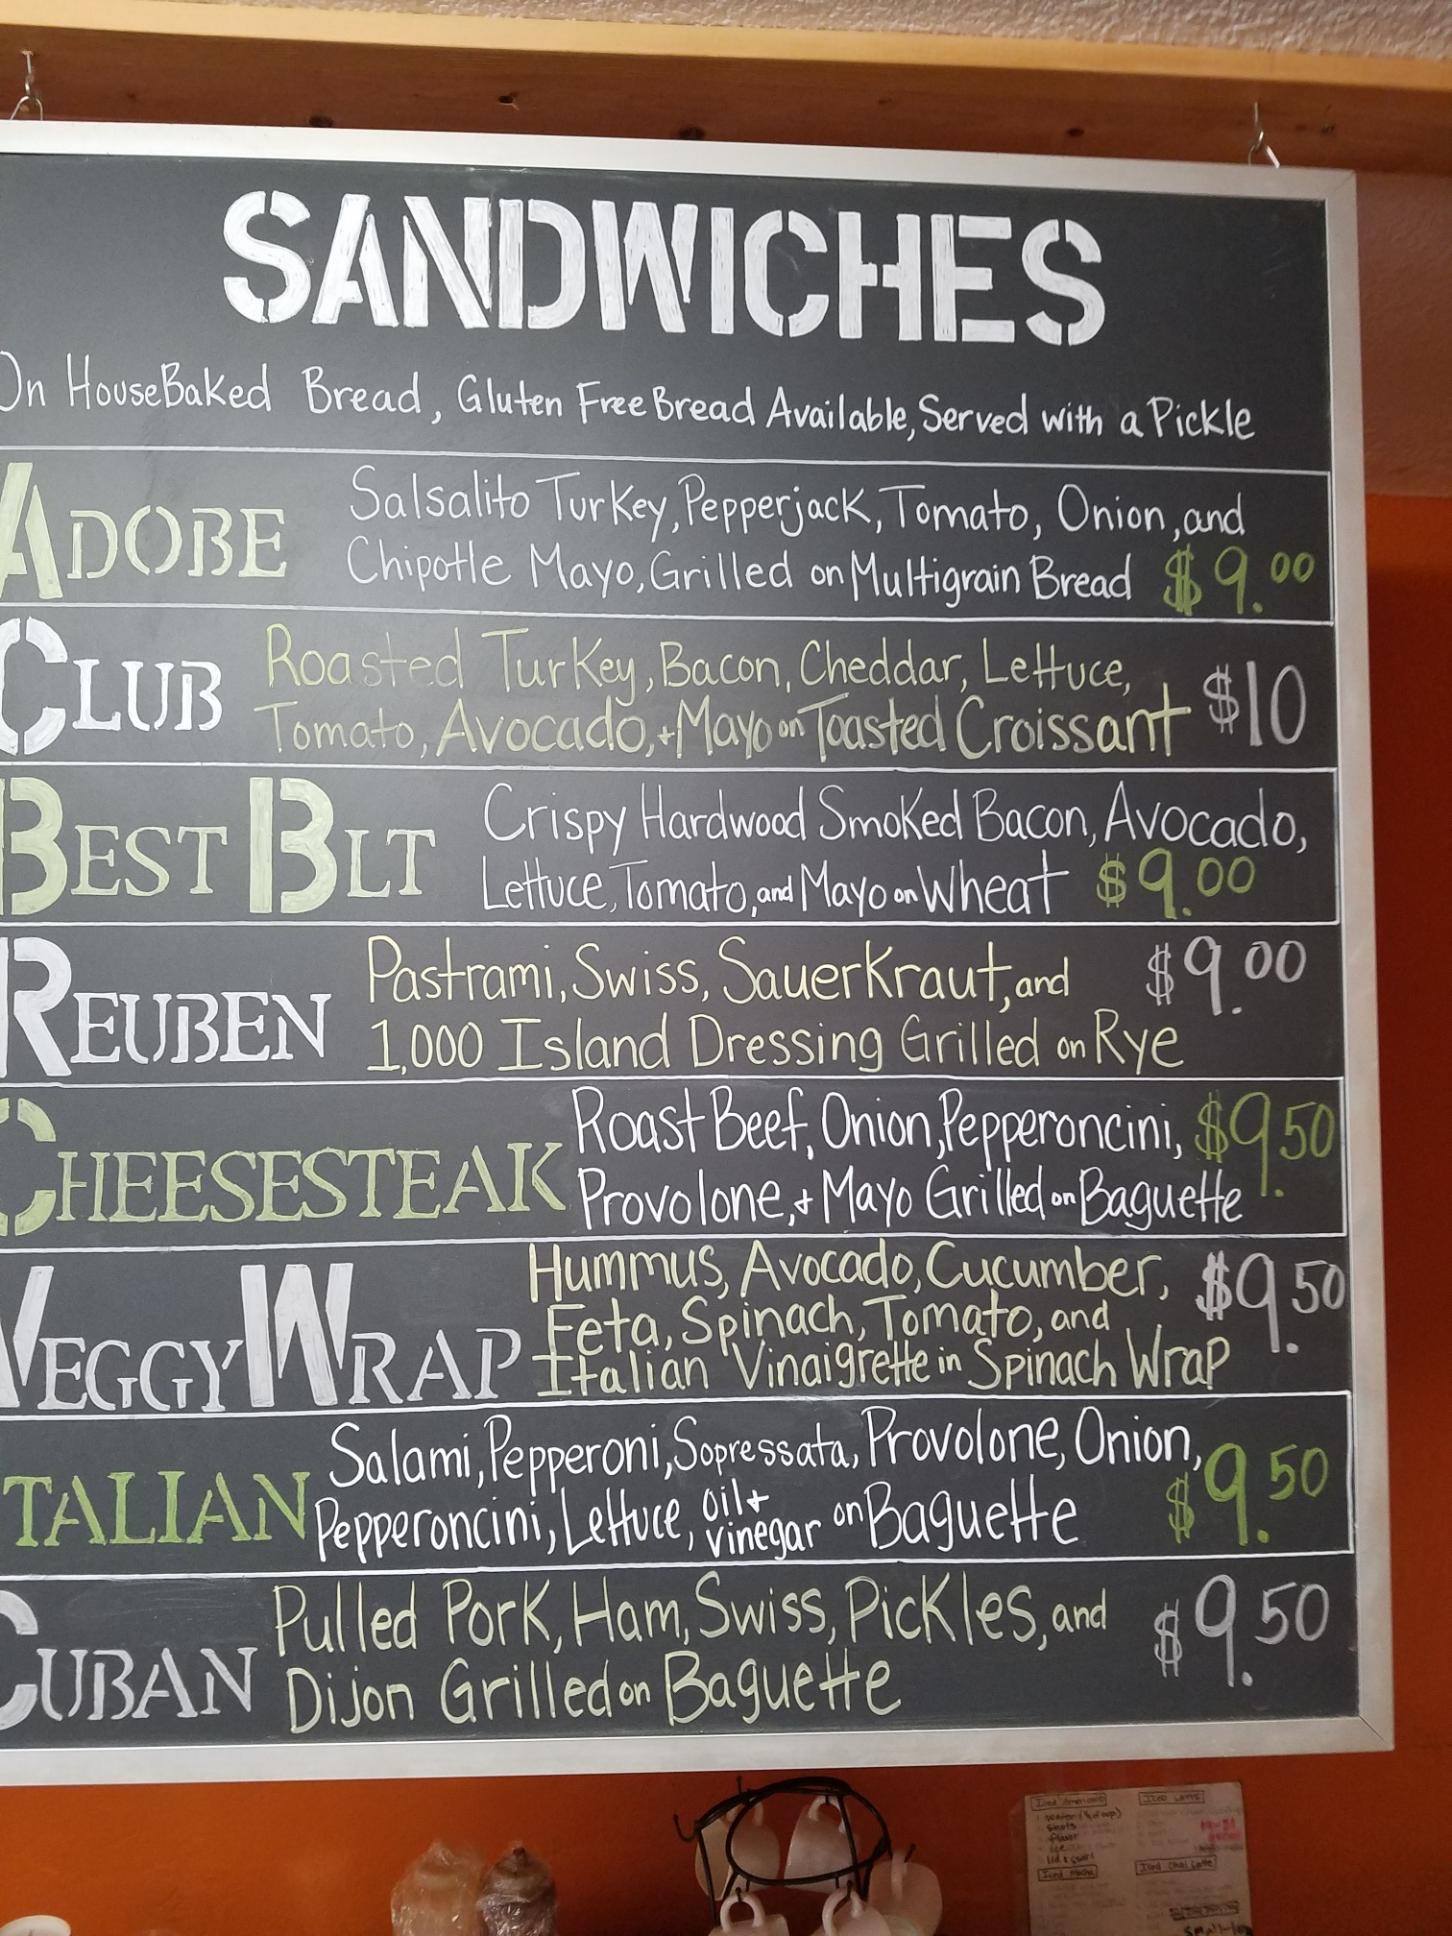 SANDWICHES
On HouseBaked Bread, Gluten Free Bread Available, Served with a Pickle
ADOBE
Salsalito Turkey, Pepperjack, Tomato, Onion, and
Chipotle Mayo, Grilled on Multigrain Bread $9.00
CLUB
Roasted Turkey, Bacon, Cheddar, Lettuce,
Tomato, Avocado, + Mayo on Toasted Croissant $10
BEST BLT
Crispy Hardwood Smoked Bacon, Avocado,
Lettuce, Tomato, and Mayo on Wheat $9.00
REUBEN
Pastrami, Swiss, Sauerkraut, and $9.00
1,000 Island Dressing Grilled on Rye
CHEESESTEAK
Roast Beef, Onion, Pepperoncini, $9.50
Provolone, + Mayo Grilled on Baguette
VEGGY WRAP
Hummus, Avocado, Cucumber, $9.50
Feta, Spinach, Tomato, and
Italian Vinaigrette in Spinach Wrap
TALIAN
Salami, Pepperoni, Sopressata, Provolone, Onion,
Pepperoncini, Lettuce, oil + vinegar on Baguette $9.50
CUBAN
Pulled Pork, Ham, Swiss, Pickles, and $9.50
Dijon Grilled on Baguette
Iced Americano
shots
flavor
ice
Iced Mocha
Iced Latte
Iced Chai Latte